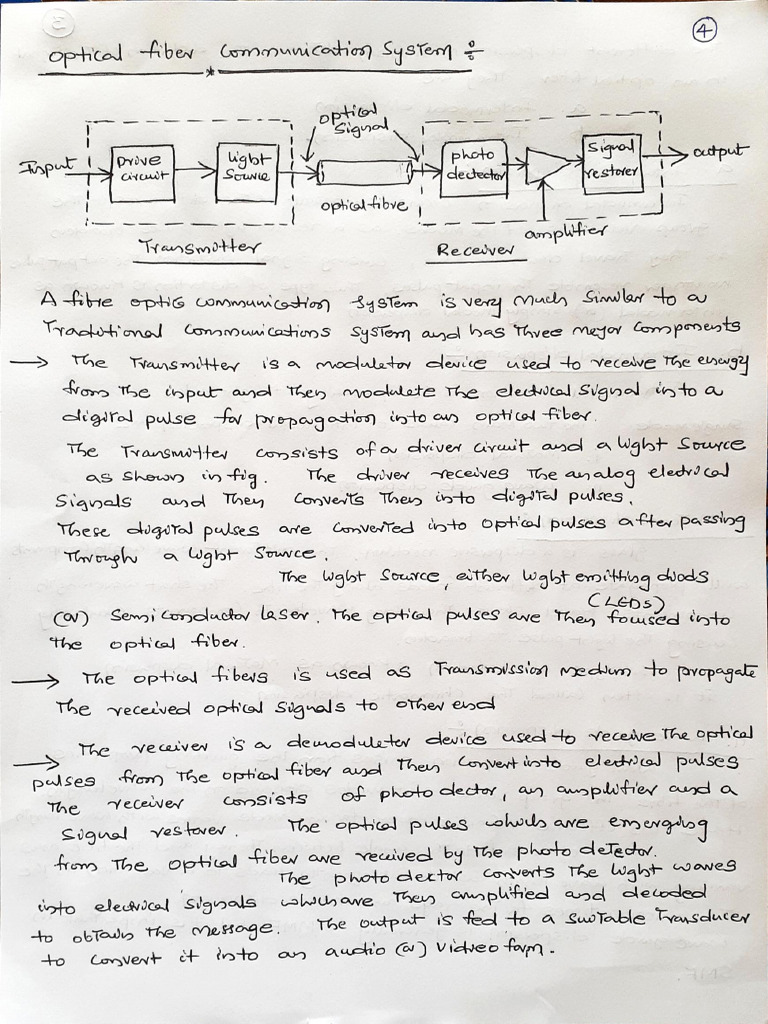 4
Optical fiber Communication System ÷
optical
Signal
Input
Drive
circuit
light
Source
optical fibre
photo
dectector
Signal
restorer
output
amplifier
Transmitter
Receiver
A fibre optic communication system is very much similar to a
Traditional communications system and has three mejor components
→ The Transmitter is a moduletor device used to receive The energy
from The input and Then modulete The electrical signal into a
digital pulse for propagation into an optical fiber.
The Transmitter consists of a driver circuit and a light source
as shown in fig. The driver receives The analog electrical
Signals and They converts Then into digital pulses.
These digital pulses are converted into optical pulses after passing
Through a light Source.
The light source, either light emitting diods
(LEDs)
(or) Semiconductor laser. The optical pulses are Then focused into
the optical fiber.
→ The optical fibers is used as Transmission medium to propagate
The received optical signals to other end
→ The receiver is a demoduleter device used to receive The optical
pulses from The optical fiber and Then convert into electrical pulses
The receiver consists of photo dector, an amplifier and a
Signal restorer. The optical pulses which are emerging
from The optical fiber are received by The photo detector.
The photo dector converts The light waves
into electrical signals which are Then amplified and decoded
to obtain the message. The output is fed to a suitable Transducer
to convert it into an audio (or) Video form.